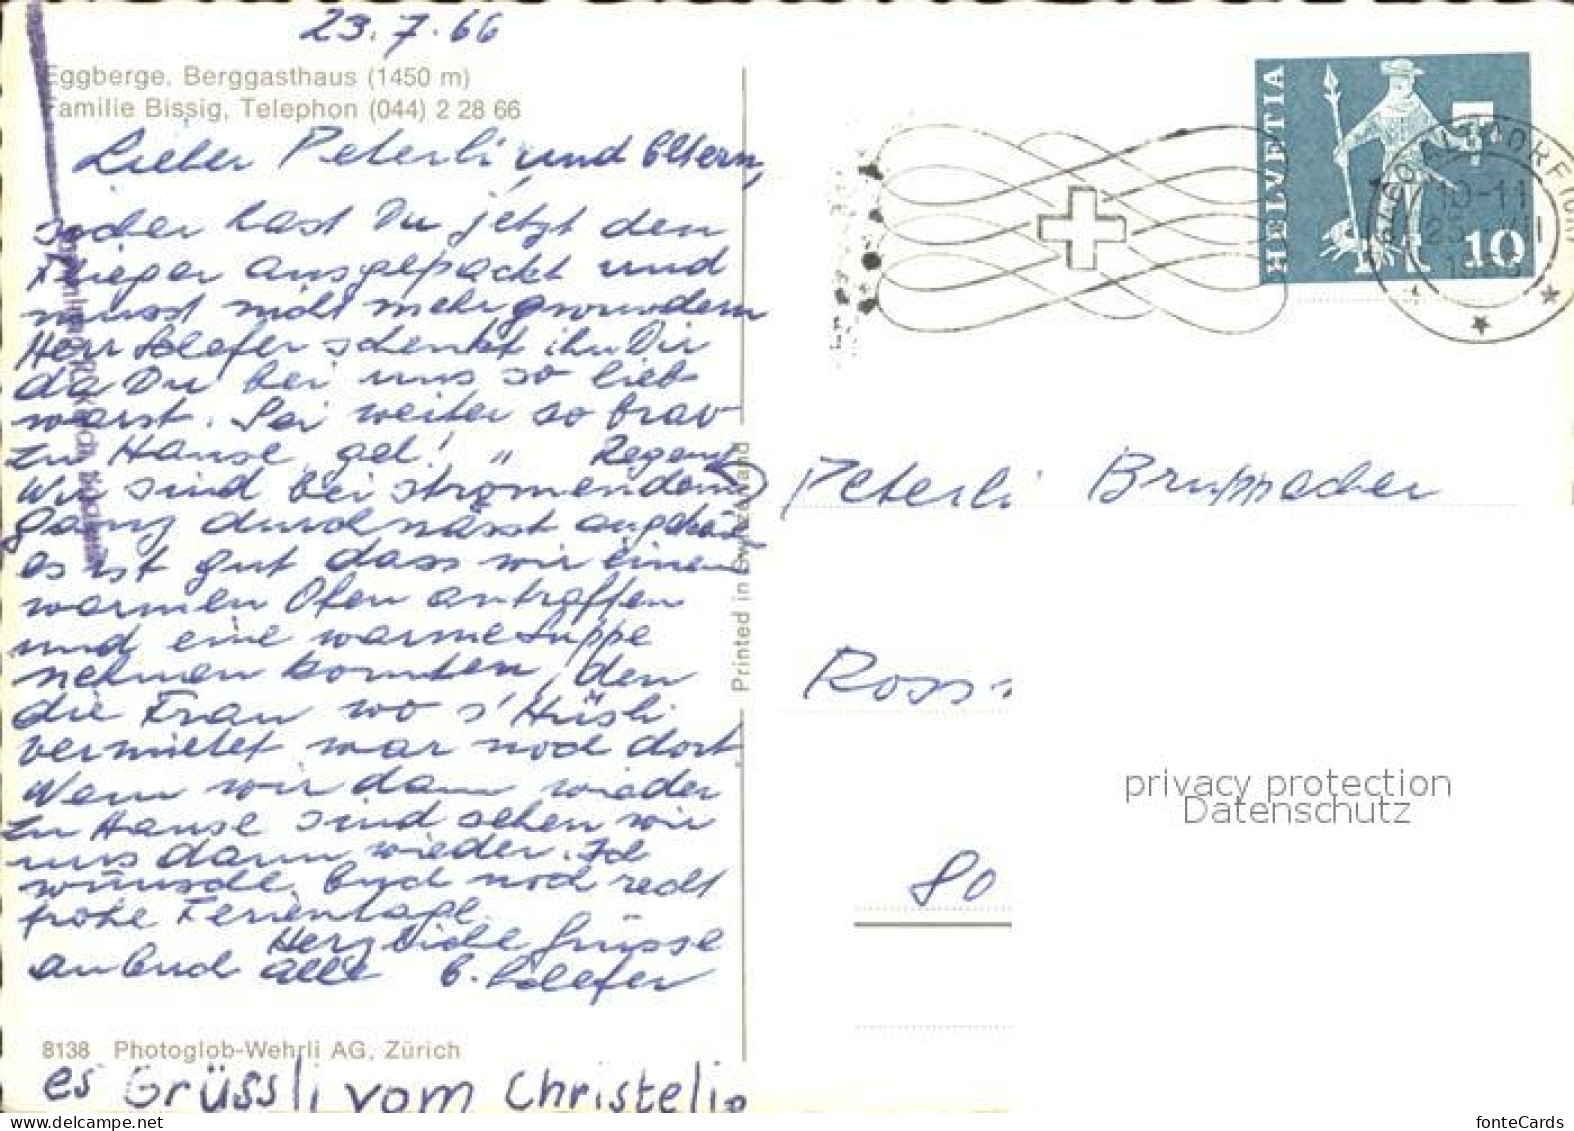 23.7.66
Eggberge, Berggasthaus (1450 m)
Familie Bissig, Telephon (044) 2 28 66
Lieber Peterli und Eltern,
sicher hast Du jetzt den
Flieger ausgepackt und
musst nicht mehr gwundern
Herr schenkt ihn Dir
da Du bei uns so lieb
warst. Sei weiter so brav
zu Hause gel! " Regen
Wir sind bei strömendem
ganz durchnässt
es ist gut dass wir einen
warmen Ofen antraffen
und eine warme Suppe
nehmen konnten, den
die Frau wo s'Hüsli
vermietet war noch dort
Wenn wir dann wieder
zu Hause sind sehen wir
uns dann wieder. Ich
wünsche Euch noch recht
frohe Ferientage.
Herzliche Grüsse
an Euch alle
8138 Photoglob-Wehrli AG, Zürich
es Grüssli vom Christeli
Printed in Switzerland
HELVETIA
10
10-11
Peterli Bruppacher
Ross
80
privacy protection
Datenschutz
fonteCards